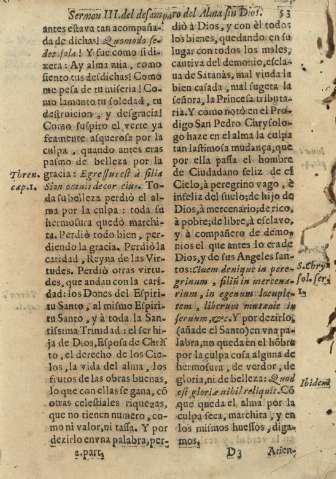 Sermon III. del desamparo del Alma sin Dios. 53
antes estava tan acompaña-
da de dichas! Quomodo se-
det sola! Y fue como si di-
xera: Ay alma mia, como
siento tus desdichas! Como
me pesa de tu miseria! Co-
mo lamento tu soledad, tu
destruicion, y desgracia!
Como suspiro el verte ya
feamente asquerosa por la
culpa, quando antes eras
pasmo de belleza por la
gracia: Egressus est à filia
Sion omnis decor eius. To-
da su belleza perdió el alma
por la culpa: toda su
hermosura quedó marchi-
ta. Perdió todo bien, per-
diendo la gracia. Perdió la
caridad, Reyna de las Vir-
tudes. Perdió otras virtu-
des, que andan con la cari-
dad: los Dones del Espiri-
tu Santo, al mismo Espiri-
tu Santo, y à toda la San-
tissima Trinidad: el ser hi-
ja de Dios, Esposa de Chris-
to, el derecho de los Cie-
los, la vida del alma, los
frutos de las obras buenas,
lo que con ellas se gana, cõ
otras celestiales riquezas,
que no tienen numero, co-
mo ni valor, ni tassa. Y por
dezirlo en vna palabra, per-
2. part.
Thren.
cap. 1.
dió à Dios, y con èl todos
los bienes, quedando en su
lugar con todos los males,
cautiva del demonio, escla-
va de Satanàs, mal viuda la
bien casada, mal sugeta la
señora, la Princesa tributa-
ria. Y como notò en el Pro-
digo San Pedro Chrysolo-
go haze en el alma la culpa
tan lastimosa mudança, que
por ella passa el hombre
de Ciudadano feliz de el
Cielo, à peregrino vago, è
infeliz del suelo; de hijo de
Dios, à mercenario; de rico,
à pobre; de libre, à esclavo,
y à compañero de demo-
nios el que antes lo era de
Dios, y de sus Angeles san-
tos: Civem denique in pere-
grinum, filiũ in mercena-
rium, in egenum locuple-
tem, liberum mutavit in
servum, &c. Y por dezirlo,
(añade el Santo) en vna pa-
labra, no queda en el hõbre
por la culpa cosa alguna de
hermosura, de verdor, de
gloria, ni de belleza: Quod
est gloriæ nihil reliquit. Cõ
que queda el alma por la
culpa seca, marchita, y en
los mismos huessos, diga-
mos,
S. Chry
sol. ser.
Ibidem
D3 Atien-